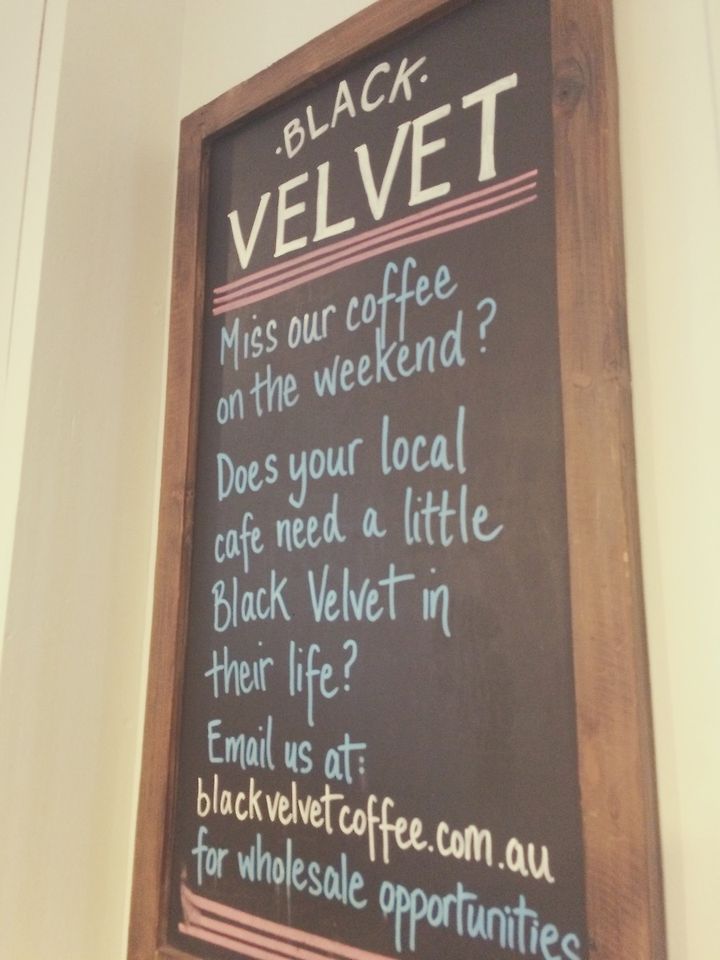 ·BLACK·
VELVET
Miss our coffee
on the weekend?
Does your local
cafe need a little
Black Velvet in
their life?
Email us at:
blackvelvetcoffee.com.au
for wholesale opportunities